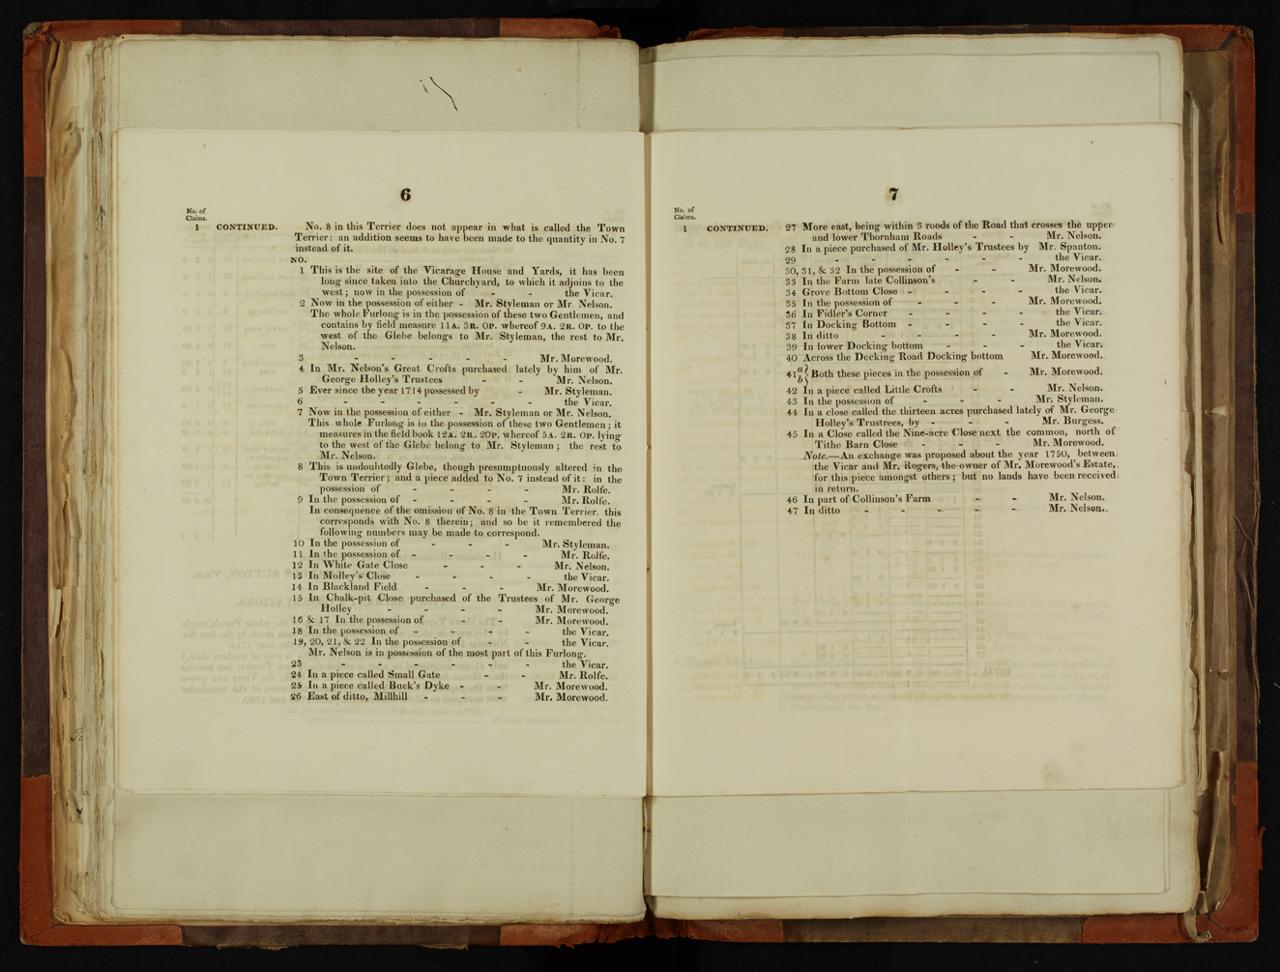 6
No. of
Claims.
1 CONTINUED. No. 8 in this Terrier does not appear in what is called the Town
Terrier: an addition seems to have been made to the quantity in No. 7
instead of it.
NO.
1 This is the site of the Vicarage House and Yards, it has been
long since taken into the Churchyard, to which it adjoins to the
west; now in the possession of - - the Vicar.
2 Now in the possession of either - Mr. Styleman or Mr. Nelson.
The whole Furlong is in the possession of these two Gentlemen, and
contains by field measure 11A. 3R. 0P. whereof 9A. 2R. 0P. to the
west of the Glebe belongs to Mr. Styleman, the rest to Mr.
Nelson.
3 - - - - - Mr. Morewood.
4 In Mr. Nelson's Great Crofts purchased lately by him of Mr.
George Holley's Trustees - - Mr. Nelson.
5 Ever since the year 1714 possessed by - Mr. Styleman.
6 - - - - - - the Vicar.
7 Now in the possession of either - Mr. Styleman or Mr. Nelson.
This whole Furlong is in the possession of these two Gentlemen; it
measures in the field book 12A. 2R. 20P. whereof 5A. 2R. 0P. lying
to the west of the Glebe belong to Mr. Styleman; the rest to
Mr. Nelson.
8 This is undoubtedly Glebe, though presumptuously altered in the
Town Terrier; and a piece added to No. 7 instead of it: in the
possession of - - - - Mr. Rolfe.
9 In the possession of - - - - Mr. Rolfe.
In consequence of the omission of No. 8 in the Town Terrier, this
corresponds with No. 8 therein; and so be it remembered the
following numbers may be made to correspond.
10 In the possession of - - - Mr. Styleman.
11 In the possession of - - - - Mr. Rolfe.
12 In White Gate Close - - - Mr. Nelson.
13 In Molley's Close - - - - the Vicar.
14 In Blackland Field - - - Mr. Morewood.
15 In Chalk-pit Close purchased of the Trustees of Mr. George
Holley - - - - Mr. Morewood.
16 & 17 In the possession of - - Mr. Morewood.
18 In the possession of - - - - the Vicar.
19, 20, 21, & 22 In the possession of - - the Vicar.
Mr. Nelson is in possession of the most part of this Furlong.
23 - - - - - - the Vicar.
24 In a piece called Small Gate - - Mr. Rolfe.
25 In a piece called Buck's Dyke - - Mr. Morewood.
26 East of ditto, Millhill - - - Mr. Morewood.
7
No. of
Claims.
1 CONTINUED. 27 More east, being within 3 roods of the Road that crosses the upper
and lower Thornham Roads - - Mr. Nelson.
28 In a piece purchased of Mr. Holley's Trustees by Mr. Spanton.
29 - - - - - - the Vicar.
30, 31, & 32 In the possession of - - Mr. Morewood.
33 In the Farm late Collinson's - - Mr. Nelson.
34 Grove Bottom Close - - - - the Vicar.
35 In the possession of - - - Mr. Morewood.
36 In Fidler's Corner - - - the Vicar.
37 In Docking Bottom - - - - the Vicar.
38 In ditto - - - - Mr. Morewood.
39 In lower Docking bottom - - - the Vicar.
40 Across the Docking Road Docking bottom Mr. Morewood.
41 a b } Both these pieces in the possession of - Mr. Morewood.
42 In a piece called Little Crofts - - Mr. Nelson.
43 In the possession of - - - Mr. Styleman.
44 In a close called the thirteen acres purchased lately of Mr. George
Holley's Trustrees, by - - - Mr. Burgess.
45 In a Close called the Nine-acre Close next the common, north of
Tithe Barn Close - - - Mr. Morewood.
Note.—An exchange was proposed about the year 1750, between
the Vicar and Mr. Rogers, the owner of Mr. Morewood's Estate,
for this piece amongst others; but no lands have been received
in return.
46 In part of Collinson's Farm - - Mr. Nelson.
47 In ditto - - - - - Mr. Nelson.